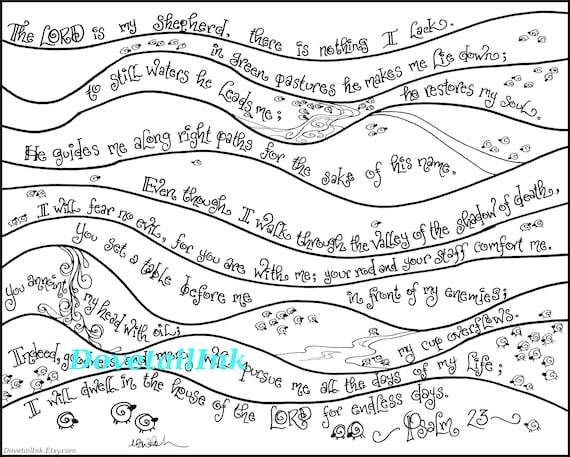 The LORD is my Shepherd, there is nothing I lack.
in green pastures he makes me lie down;
to still waters he leads me;
he restores my soul.
He guides me along right paths for the sake of his name.
Even though I walk through the valley of the shadow of death,
I will fear no evil, for you are with me; your rod and your staff comfort me.
You set a table before me
in front of my enemies;
You anoint my head with oil;
my cup overflows.
Indeed, pursue me all the days of my life;
DovetailInk
I will dwell in the house of the LORD for endless days.
Psalm 23~
DovetailInk.Etsy.com